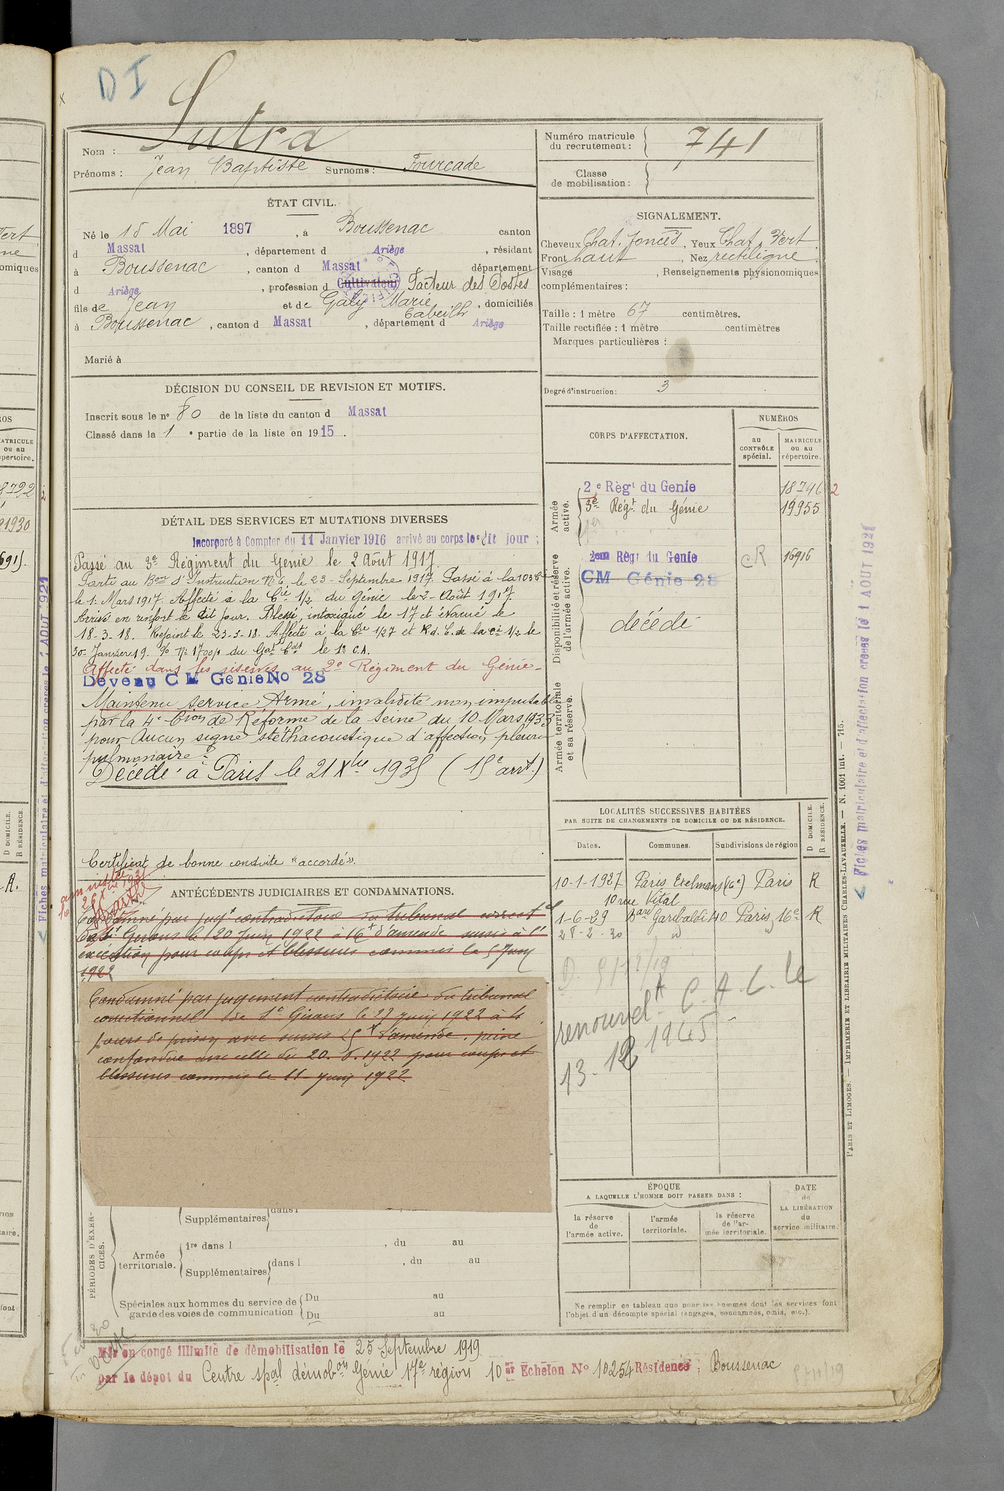 D I
Sutra
Nom :
Prénoms : Jean Baptiste Surnoms : Fourcade
Numéro matricule du recrutement : 741
Classe de mobilisation :
ÉTAT CIVIL.
Né le 18 Mai 1897, à Boussenac canton
d Massat, département d Ariège, résidant
à Boussenac, canton d Massat département
d Ariège, profession d Cultivateur Facteur des Postes
fils de Jean et de Galy Marie Cabeilh, domiciliés
à Boussenac, canton d Massat, département d Ariège
Marié à
SIGNALEMENT.
Cheveux Chat. foncés, Yeux Chat. Vert
Front haut Nez rectiligne
Visage , Renseignements physionomiques
complémentaires :
Taille : 1 mètre 67 centimètres.
Taille rectifiée : 1 mètre centimètres
Marques particulières :
Degré d'instruction : 3
DÉCISION DU CONSEIL DE REVISION ET MOTIFS.
Inscrit sous le n° 80 de la liste du canton d Massat
Classé dans la 1e partie de la liste en 1915.
DÉTAIL DES SERVICES ET MUTATIONS DIVERSES
Incorporé à Compter du 11 Janvier 1916 arrivé au corps le dit jour ;
Passé au 3e Régiment du Génie le 2 Août 1917.
le 23 Septembre 1917. Passé à la
le 1 Mars 1917. Affecté à la Cie 1/2 du Génie le 2 Août 1917
Arrivé en renfort le dit jour. Blessé, intoxiqué le 17 et évacué le
18.3.18. Rejoint le 23.5.18. Affecté à la Cie 1/27
Affecté dans les réserves au 2e Régiment du Génie
Devenu C M Génie No 28
Maintenu service Armé, invalidité non imputable
par la 4e Cion de Réforme de la Seine du 10 Mars 1933
pour aucun signe stéthacoustique d'affection pleuro
pulmonaire
Décédé à Paris le 21 Xbre 1935 (15e arrt.)
Certificat de bonne conduite "accordé".
CORPS D'AFFECTATION.
NUMÉROS
au CONTRÔLE spécial.
MATRICULE ou au répertoire.
Armée active.
2e Régt du Genie 18746
3e Régt du Génie 19955
Disponibilité et réserve de l'armée active.
2eme Régt du Genie CR 16916
CM Génie 28
décédé
Armée territoriale et sa réserve.
ANTÉCÉDENTS JUDICIAIRES ET CONDAMNATIONS.
Condamné par jugt contradictoire du tribunal correctel
de St Girons le 20 Juin 1922 à 16f d'amende sursis à l'
exécution pour coups et blessures commis le 5 Juin
1922
Condamné par jugement contradictoire du tribunal
correctionnel de St Girons le 27 juin 1922 à 4
jours de prison avec sursis 25f d'amende, peine
confondue avec celle du 20.6.1922 pour coups et
blessures commis le 11 juin 1922
LOCALITÉS SUCCESSIVES HABITÉES
PAR SUITE DE CHANGEMENTS DE DOMICILE OU DE RÉSIDENCE.
Dates. Communes. Subdivisions de région D DOMICILE. R RÉSIDENCE.
10-1-1927 Paris Exelmans (16e) Paris R
10 rue Vital
1-6-29 Bard Garibaldi 40 Paris 16e R
28-2-30 id
D 9/12/19
renouvelt C.A.C. le
13.12 1945
ÉPOQUE
A LAQUELLE L'HOMME DOIT PASSER DANS :
DATE de LA LIBÉRATION du service militaire.
la réserve de l'armée active.
l'armée territoriale.
la réserve de l'armée territoriale.
Ne remplir ce tableau que pour les hommes dont les services font
l'objet d'un décompte spécial (engagés, condamnés, omis, etc.).
PÉRIODES D'EXERCICES.
Supplémentaires dans l
Armée territoriale.
1re dans l , du au
Supplémentaires dans l , du au
Spéciales aux hommes du service de garde des voies de communication
Du au
Du au
Mis en congé illimité de démobilisation le 25 Septembre 1919
par le dépôt du Centre spal démobon Génie 17e région 10eme Echelon No 10254 Résidence : Boussenac
Fiches matriculaire et d'affectation creees le 1 AOUT 1921
PARIS ET LIMOGES. — IMPRIMERIE ET LIBRAIRIE MILITAIRES CHARLES-LAVAUZELLE. — N. 1001 int. — 715.